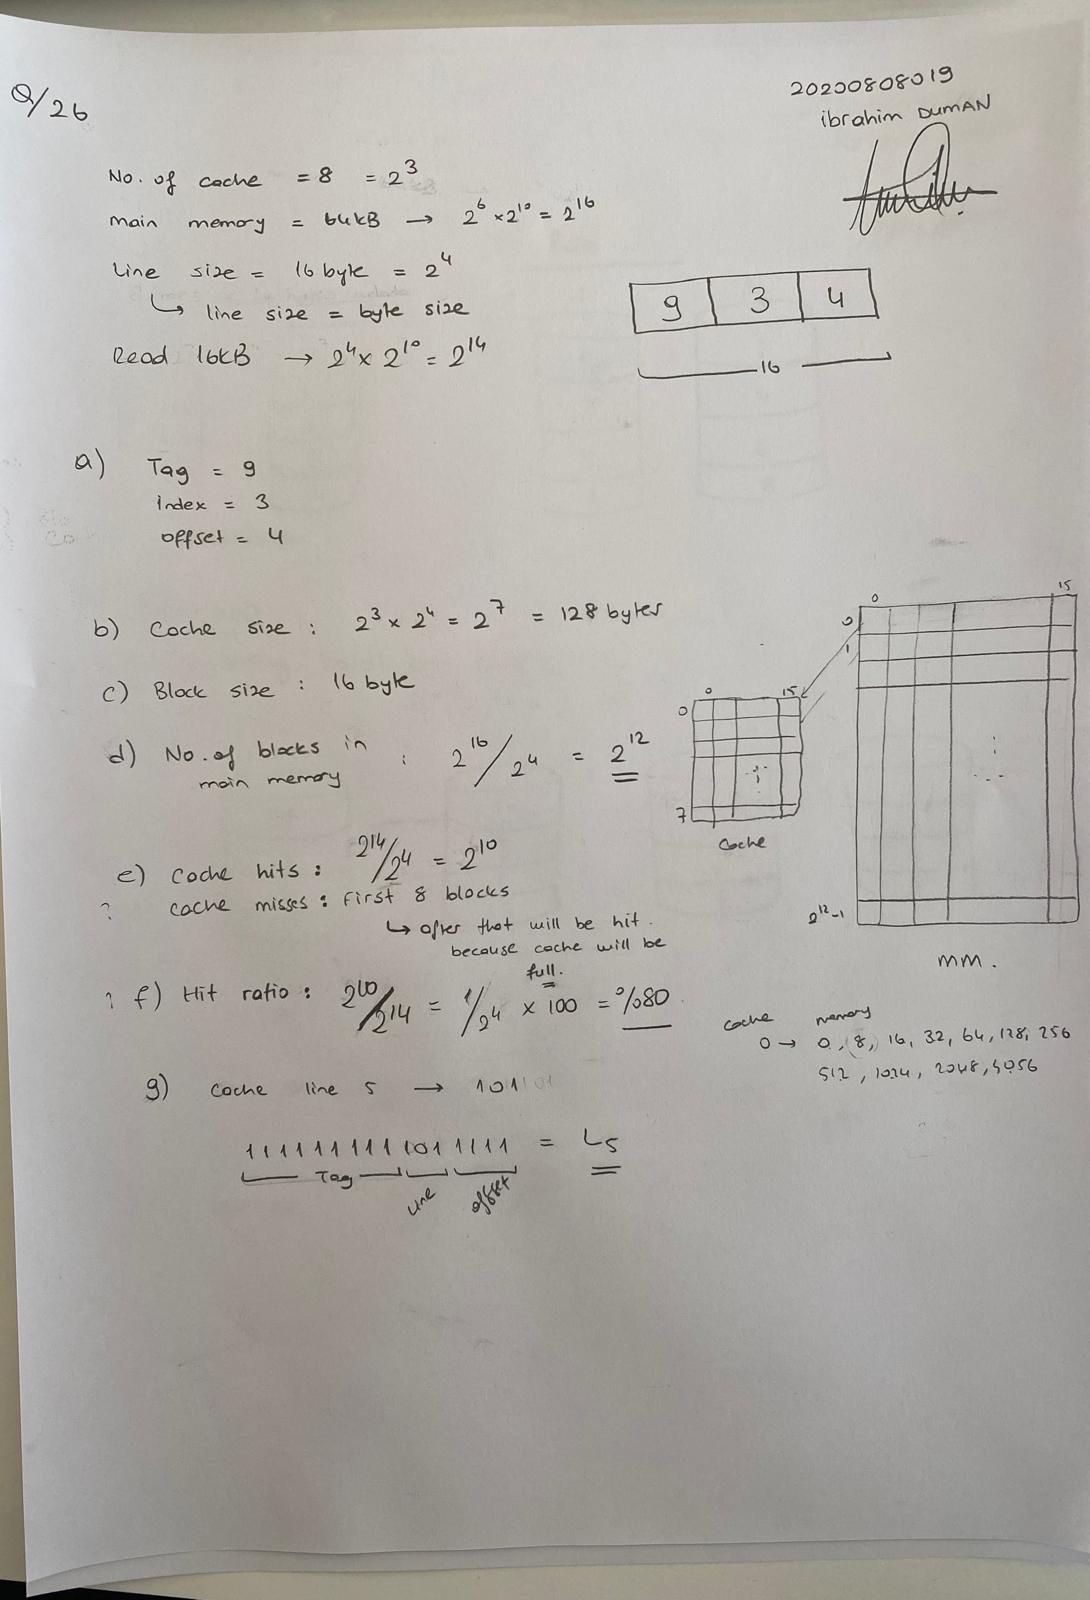 Q/26
20200808019
ibrahim DUMAN
No. of cache = 8 = 2^3
main memory = 64kB → 2^6 x 2^10 = 2^16
Line size = 16 byte = 2^4
↳ line size = byte size
Read 16kB → 2^4 x 2^10 = 2^14
9 3 4
16
a) Tag = 9
index = 3
offset = 4
b) Cache size : 2^3 x 2^4 = 2^7 = 128 bytes
c) Block size : 16 byte
d) No. of blocks in main memory : 2^16/2^4 = 2^12
0 15
0
1
2^12-1
mm.
0 15
0
7
Cache
e) Cache hits : 2^14/2^4 = 2^10
? cache misses : first 8 blocks
↳ after that will be hit.
because cache will be
full.
? f) Hit ratio : 2^10/2^14 = 1/2^4 x 100 = %80
cache memory
0 → 0, 8, 16, 32, 64, 128, 256
512, 1024, 2048, 4056
g) Cache line 5 → 101
111111111 101 1111 = L5
Tag Line offset